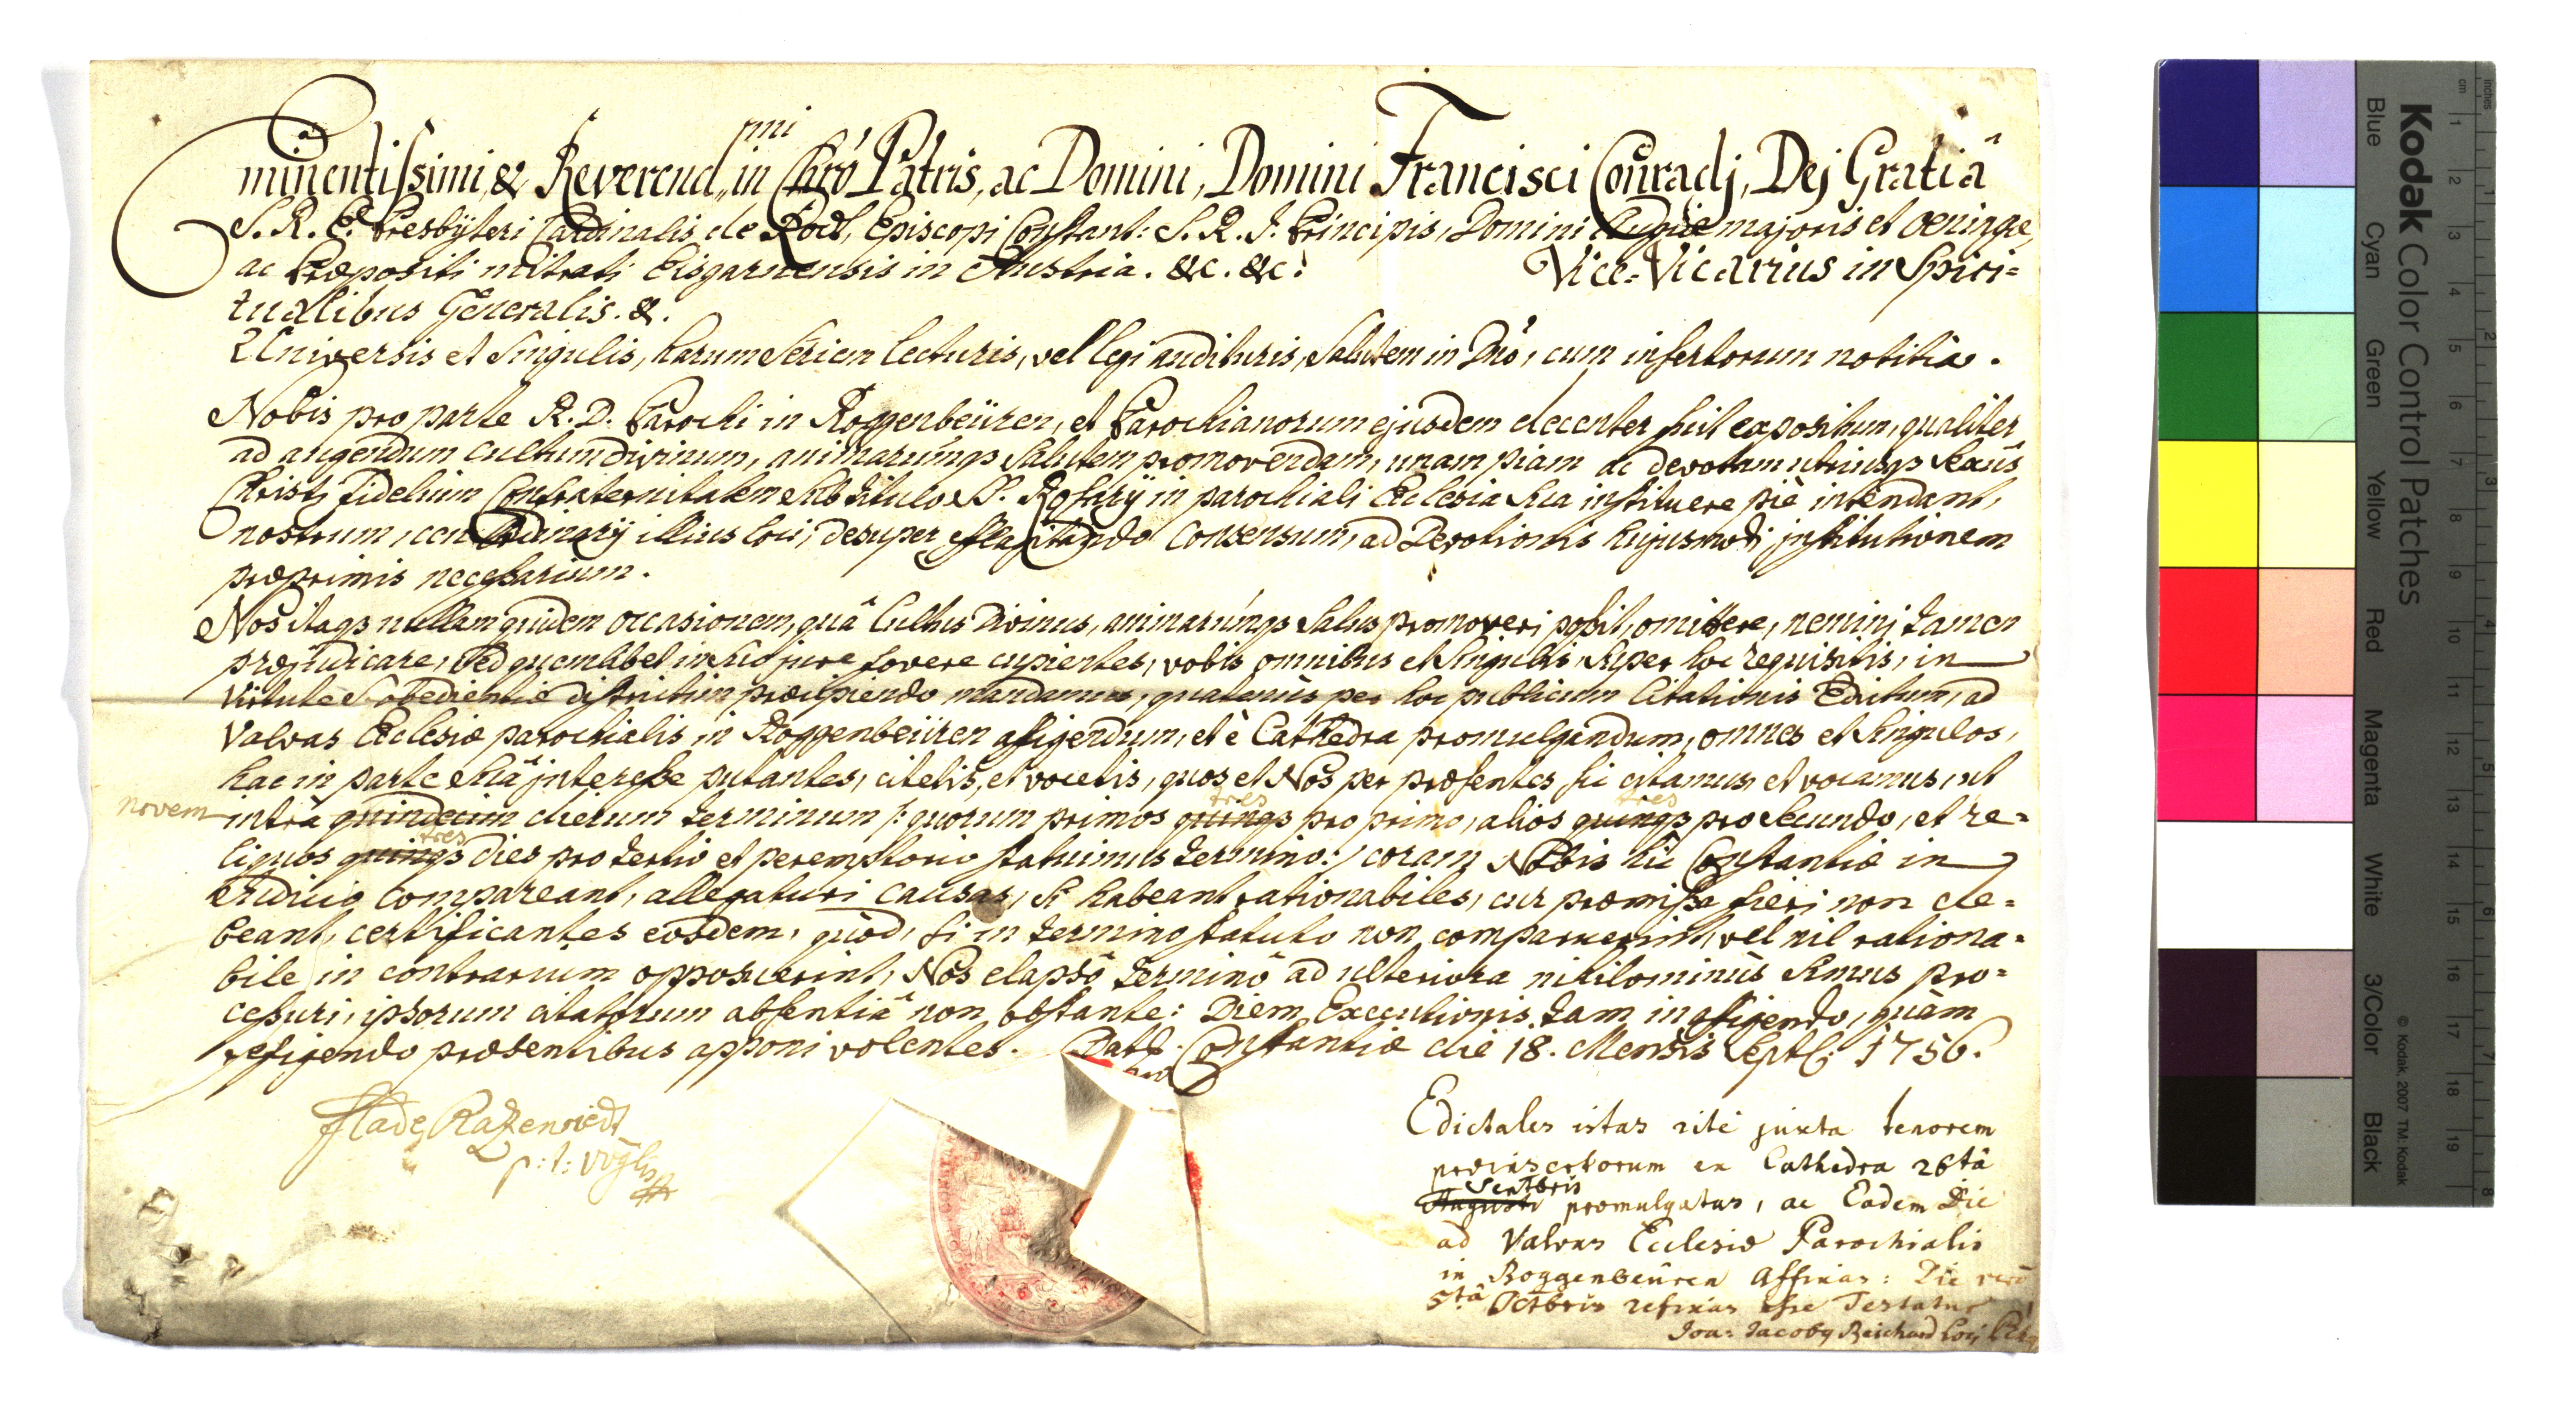 Eminentissimi, & Reverend mi in Chrō Patris, ac Domini, Domini Francisci Conradj, Dej Gratiâ
S. R. E. Presbÿteri Cardinalis de Rodt, Episcopi Constant: S. R. I. Principis, Domini Augiæ majoris et Oeningæ,
ac Præpositi mitrati Eisgarnensis in Austria. &c. &c: Vice-Vicarius in Spiri=
tualibus Generalis. &.
Universis et Singulis, harum Seriem lecturis, vel legi audituris, Salutem in Dno, cum insertorum notitia.
Nobis pro parte R. D. Parochi in Roggenbeüren, et Parochianorum ejusdem decenter fuit expositum, qualiter
ad augendum cultum divinum, animarumqs Salutem promovendam, unam piam ac devotam utriusqs Sexûs
Christi Fidelium Confraternitatem sub titulo S. Rosarÿ in parochiali Ecclesia sua instituere piè intendant,
nostrum, ceu Ordinarÿ illius loci, desuper efflagitando Consensum, ad Devotionis hujusmodi institutionem
præprimis necessarium.
Nos itaqs nullam quidem occasionem, quâ Cultus Divinus, animarumqs Salus promoveri possit, omittere, nemini tamen
præjudicare, sed quemlibet in suo jure fovere cupientes, vobis omnibus et Singulis super hoc requisitis, in
virtute S. obedientiæ districtim præcipiendo mandamus, quatenùs per hoc publicum Citationis Edictum, ad
Valvas Ecclesiæ parochialis in Roggenbeüren affigendum, et è Cathedra promulgandum, omnes et Singulos,
hac in parte suâ interesse putantes, citetis, et vocetis, quos et Nos per præsentes sic citamus et vocamus, ut
novem
intra quindecim dierum terminum /: quorum primos quinqs pro primo, alios quinqs pro Secundo, et re=
tres tres
liquos quinqs dies pro tertio et peremptorio statuimus termino :/ coram Nobis hic Constantiæ in
tres
Judicio compareant, allegaturi causas, si habeant rationabiles, cur præmissa fieri non de=
beant, certificantes eosdem, quòd, si in termino statuto non comparuerint, vel nil rationa=
bile in contrarium opposuerint, Nos elapsô terminô ad ulteriora nihilominùs simus pro=
cessuri, ipsorum citatorum absentiâ non obstante: Diem Executionis tam in affigendo, quàm
refigendo præsentibus apponi volentes. Dat. Constantiæ die 18. Mensis Septb: 1756.
Edictales istas ritè juxta tenorem
præinsertorum ex Cathedra 26tâ
Septbris
Augusti promulgatas, ac Eadem Die
ad Valvas Ecclesiæ Parochialis
in Roggenbeüren Affixas: Die verò
5tâ Octbris refixas esse Testatur
Joa: Jacobq Reichard
Kodak Color Control Patches
Blue
Cyan
Green
Yellow
Red
Magenta
White
3/Color
Black
© Kodak, 2007 TM: Kodak
cm 1 2 3 4 5 6 7 8 9 10 11 12 13 14 15 16 17 18 19
inches 1 2 3 5 6 7 8